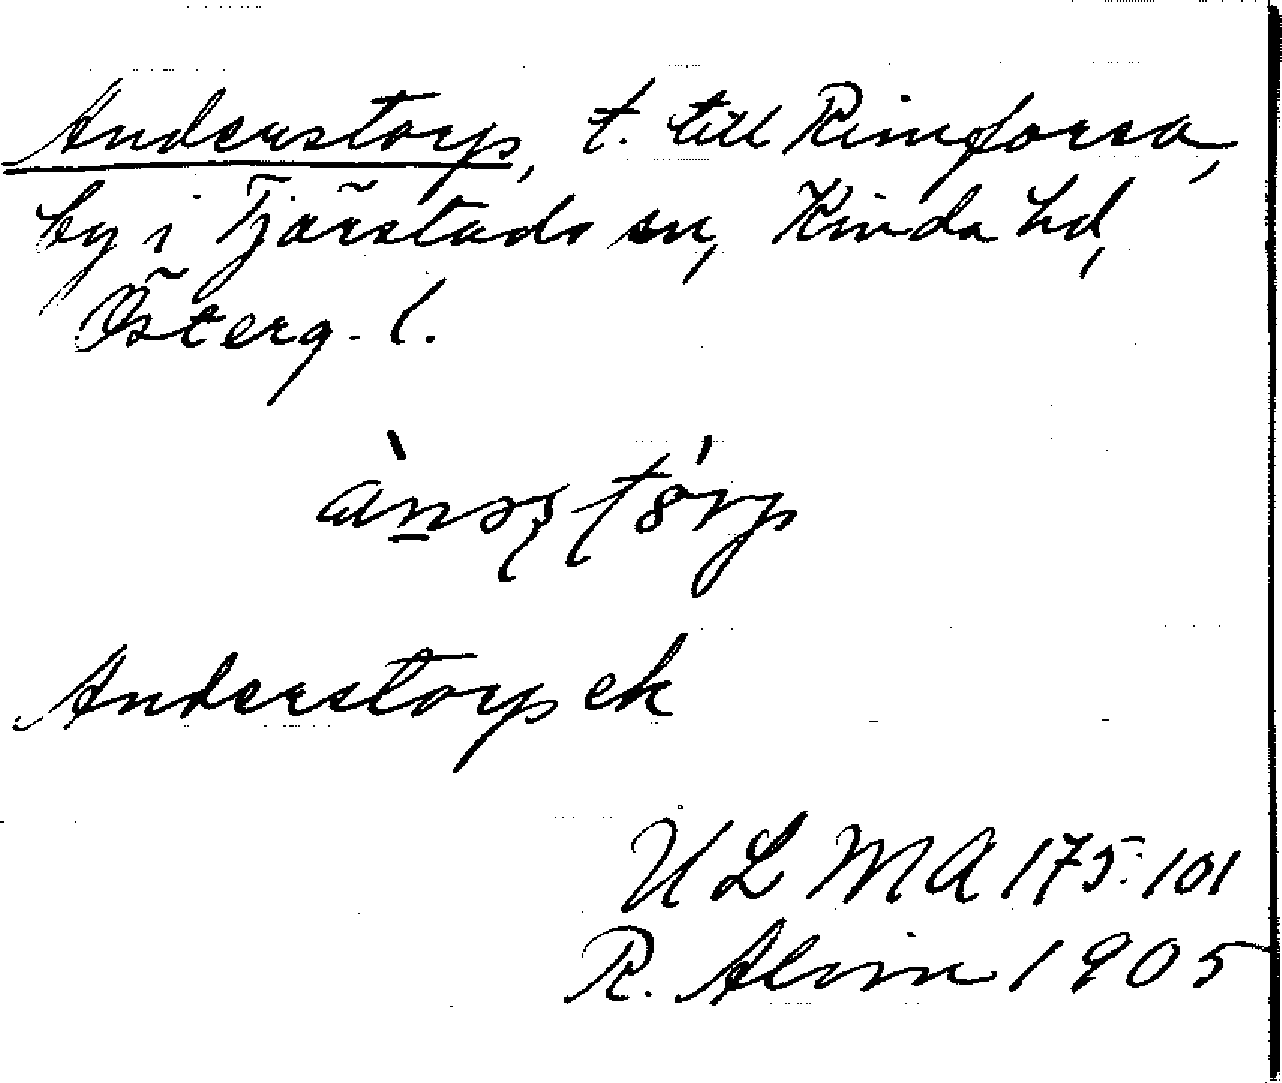 Anderstorp, t. till Rimforsa,
by i Tjärstads sn, Kinda hd,
Österg. l.
Anderstorp ek
ULMA 175:101
R. Alvin 1905